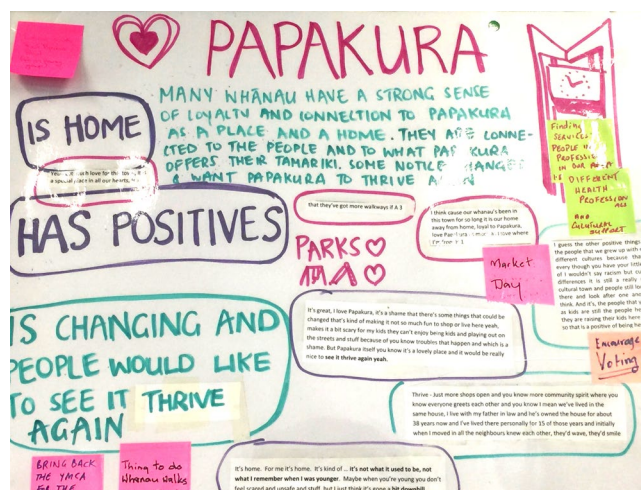 PAPAKURA
MANY WHĀNAU HAVE A STRONG SENSE
OF LOYALTY AND CONNECTION TO PAPAKURA
AS A PLACE AND A HOME. THEY ARE CONNE-
CTED TO THE PEOPLE AND TO WHAT PAPAKURA
OFFERS THEIR TAMARIKI. SOME NOTICE CHANGES
& WANT PAPAKURA TO THRIVE AGAIN
IS HOME
a special place in all our hearts,
HAS POSITIVES
that they've got more walkways
PARKS
I think cause our whanau's been in
this town for so long it is our home
away from home, loyal to Papakura,
love
Finding
SERVICES
PEOPLE
IN OUR
DIFFERENT
HEALTH
PROFESSION
AND
CULTURAL
SUPPORT
Market
Day
I guess the other positive things
the people that we grew up with
different cultures because tha
every though you have your little
of I wouldn't say racism but cu
differences it is still a really
cultural town and people still lo
there and look after one and
think. And it's, the people that
as kids are still the people
they are raising their kids here
so that is a positive of being
ENCOURAGE
Voting
It's great, I love Papakura, it's a shame that there's some things that could be
changed that's kind of making it not so much fun to shop or live here yeah,
makes it a bit scary for my kids they can't enjoy being kids and playing out on
the streets and stuff because of you know troubles that happen and which is a
shame. But Papakura itself you know it's a lovely place and it would be really
nice to see it thrive again yeah.
IS CHANGING AND
PEOPLE WOULD LIKE
TO SEE IT THRIVE
AGAIN
Thrive - Just more shops open and you know more community spirit where you
know everyone greets each other and you know I mean we've lived in the
same house, I live with my father in law and he's owned the house for about
38 years now and I've lived there personally for 15 of those years and initially
when I moved in all the neighbours knew each other, they'd wave, they'd smile
BRING BACK
THE YMCA
FOR THE
Thing to do
Whanau walks
It's home. For me it's home. It's kind of ... it's not what it used to be, not
what I remember when I was younger. Maybe when you're young you don't
feel scared and unsafe and stuff, but I just think it's gone a bit downhill